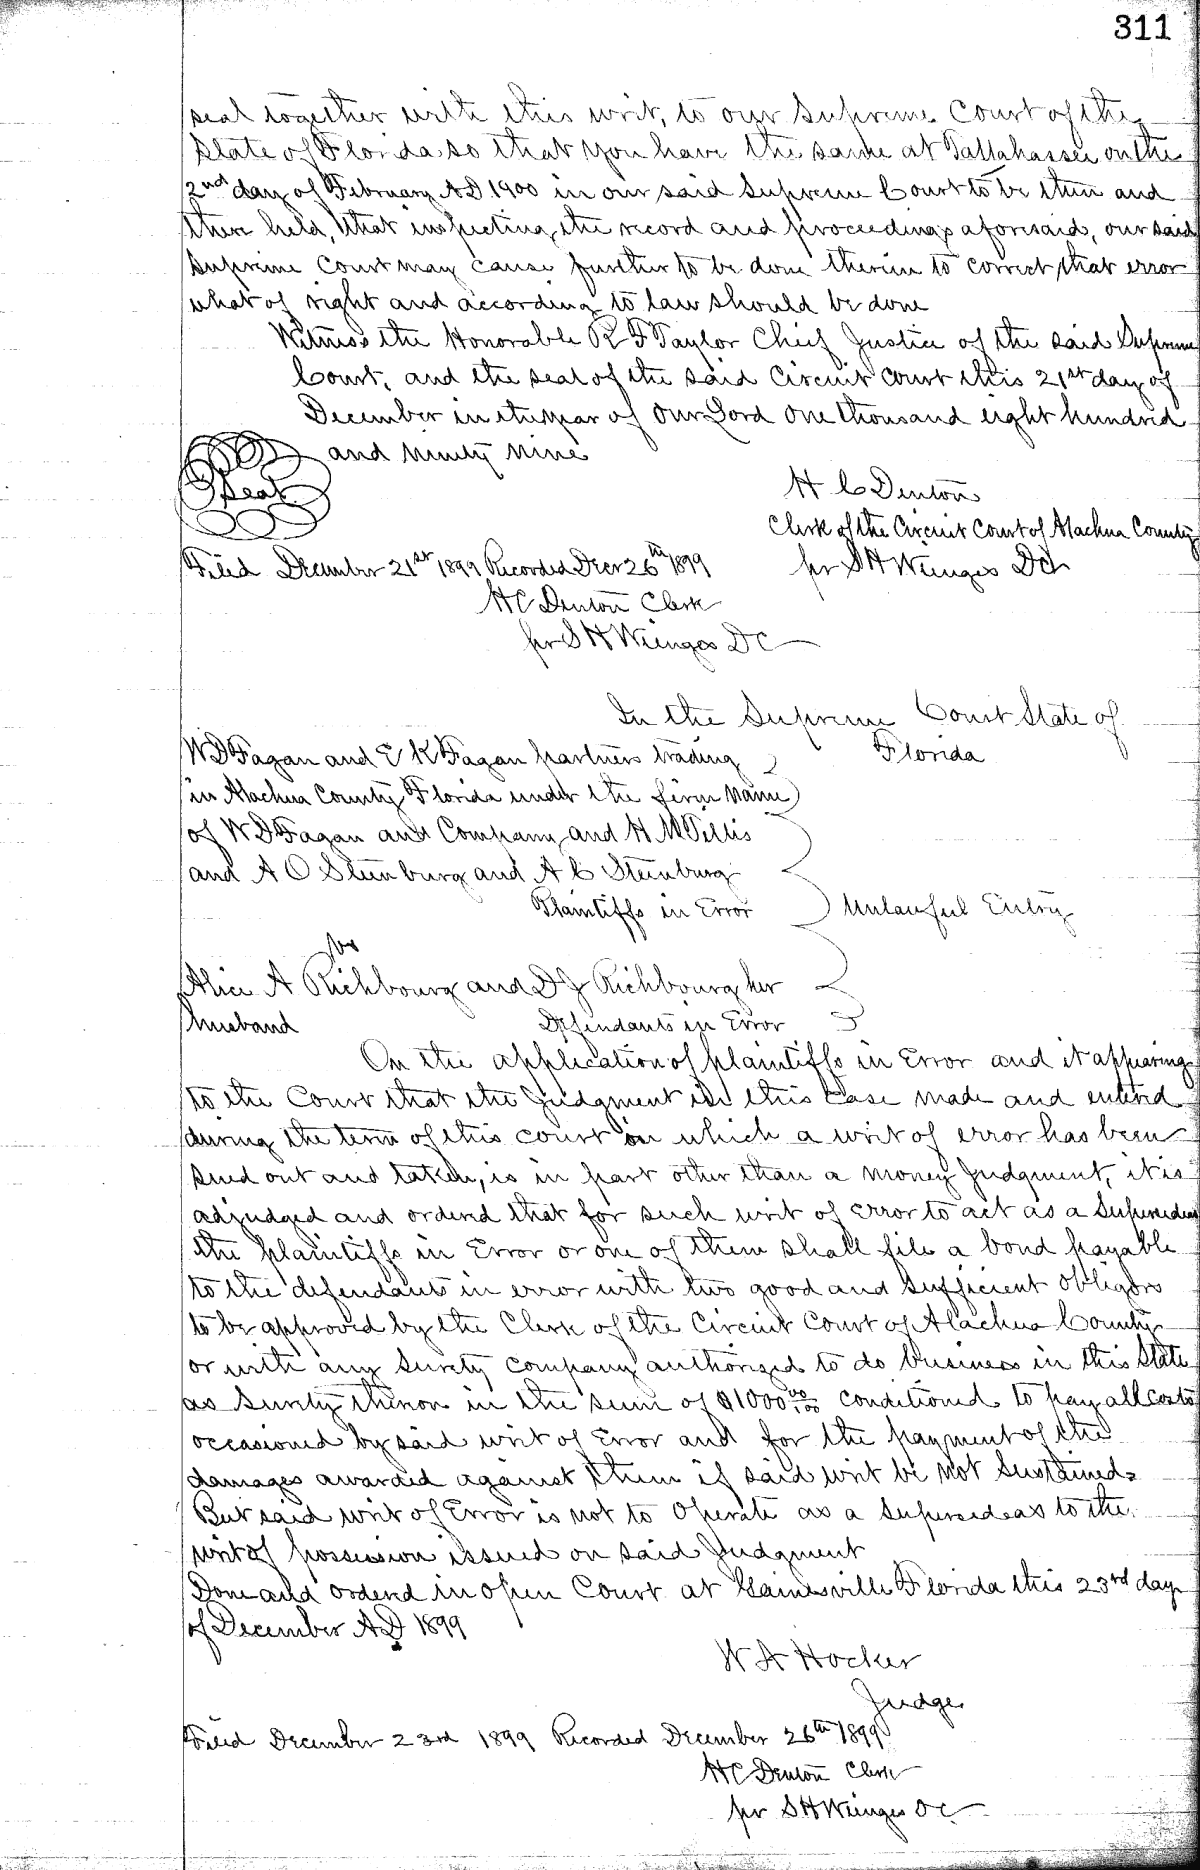 311
seal together with this writ, to our Supreme Court of the
State of Florida so that you have the same at Tallahassee on the
2nd day of February AD 1900 in our said Supreme Court to be then and
there held, that inspecting the record and proceedings aforesaid, our said
Supreme Court may cause further to be done therein to correct that error
what of right and according to law should be done
Witness the Honorable R F Taylor Chief Justice of the said Supreme
Court, and the seal of the said Circuit Court this 21st day of
December in the year of Our Lord One thousand eight hundred
and ninety nine
Seal
H C Denton
Clerk of the Circuit Court of Alachua County
per S H Wienges DC
Filed December 21st 1899 Recorded Decr 26th 1899
H C Denton Clerk
per S H Wienges DC
In the Supreme Court State of
Florida
W D Fagan and E K Fagan partners trading
in Alachua County Florida under the firm name
of W D Fagan and Company and H M Tillis
and A O Steenburg and A C Steenburg
Plaintiffs in Error
Unlawful Entry
vs
Alice A Richbourg and D J Richbourg her
husband
Defendants in Error
On the application of plaintiffs in Error and it appearing
to the Court that the Judgment in this case made and entered
during the term of this court on which a writ of error has been
sued out and taken, is in part other than a money Judgment, it is
adjudged and ordered that for such writ of error to act as a Supersedeas
the plaintiffs in Error or one of them shall file a bond payable
to the defendants in error with two good and sufficient obligors
to be approved by the Clerk of the Circuit Court of Alachua County
or with any Surety Company authorized to do business in this State
as Surety thereon in the sum of $1000 00/100 conditioned to pay all costs
occasioned by said writ of Error and for the payment of the
damages awarded against them if said writ be not Sustained
But said writ of Error is not to Operate as a Supersedeas to the
writ of possession issued on said Judgment
Done and Ordered in open Court at Gainesville Florida this 23rd day
of December AD 1899
W A Hocker
Judge
Filed December 23rd 1899 Recorded December 26th 1899
H C Denton Clerk
per S H Wienges DC